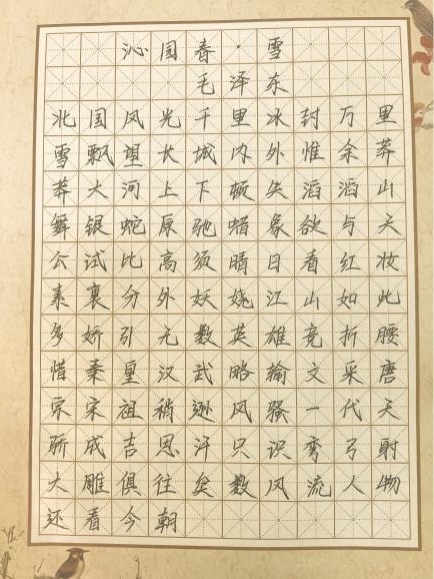 沁园春·雪
毛泽东
北国风光千里冰封万里
雪飘望长城内外惟余莽
莽大河上下顿失滔滔山
舞银蛇原驰蜡象欲与天
公试比高须晴日看红妆
素裹分外妖娆江山如此
多娇引无数英雄竞折腰
惜秦皇汉武略输文采唐
宗宋祖稍逊风骚一代天
骄成吉思汗只识弯弓射
大雕俱往矣数风流人物
还看今朝